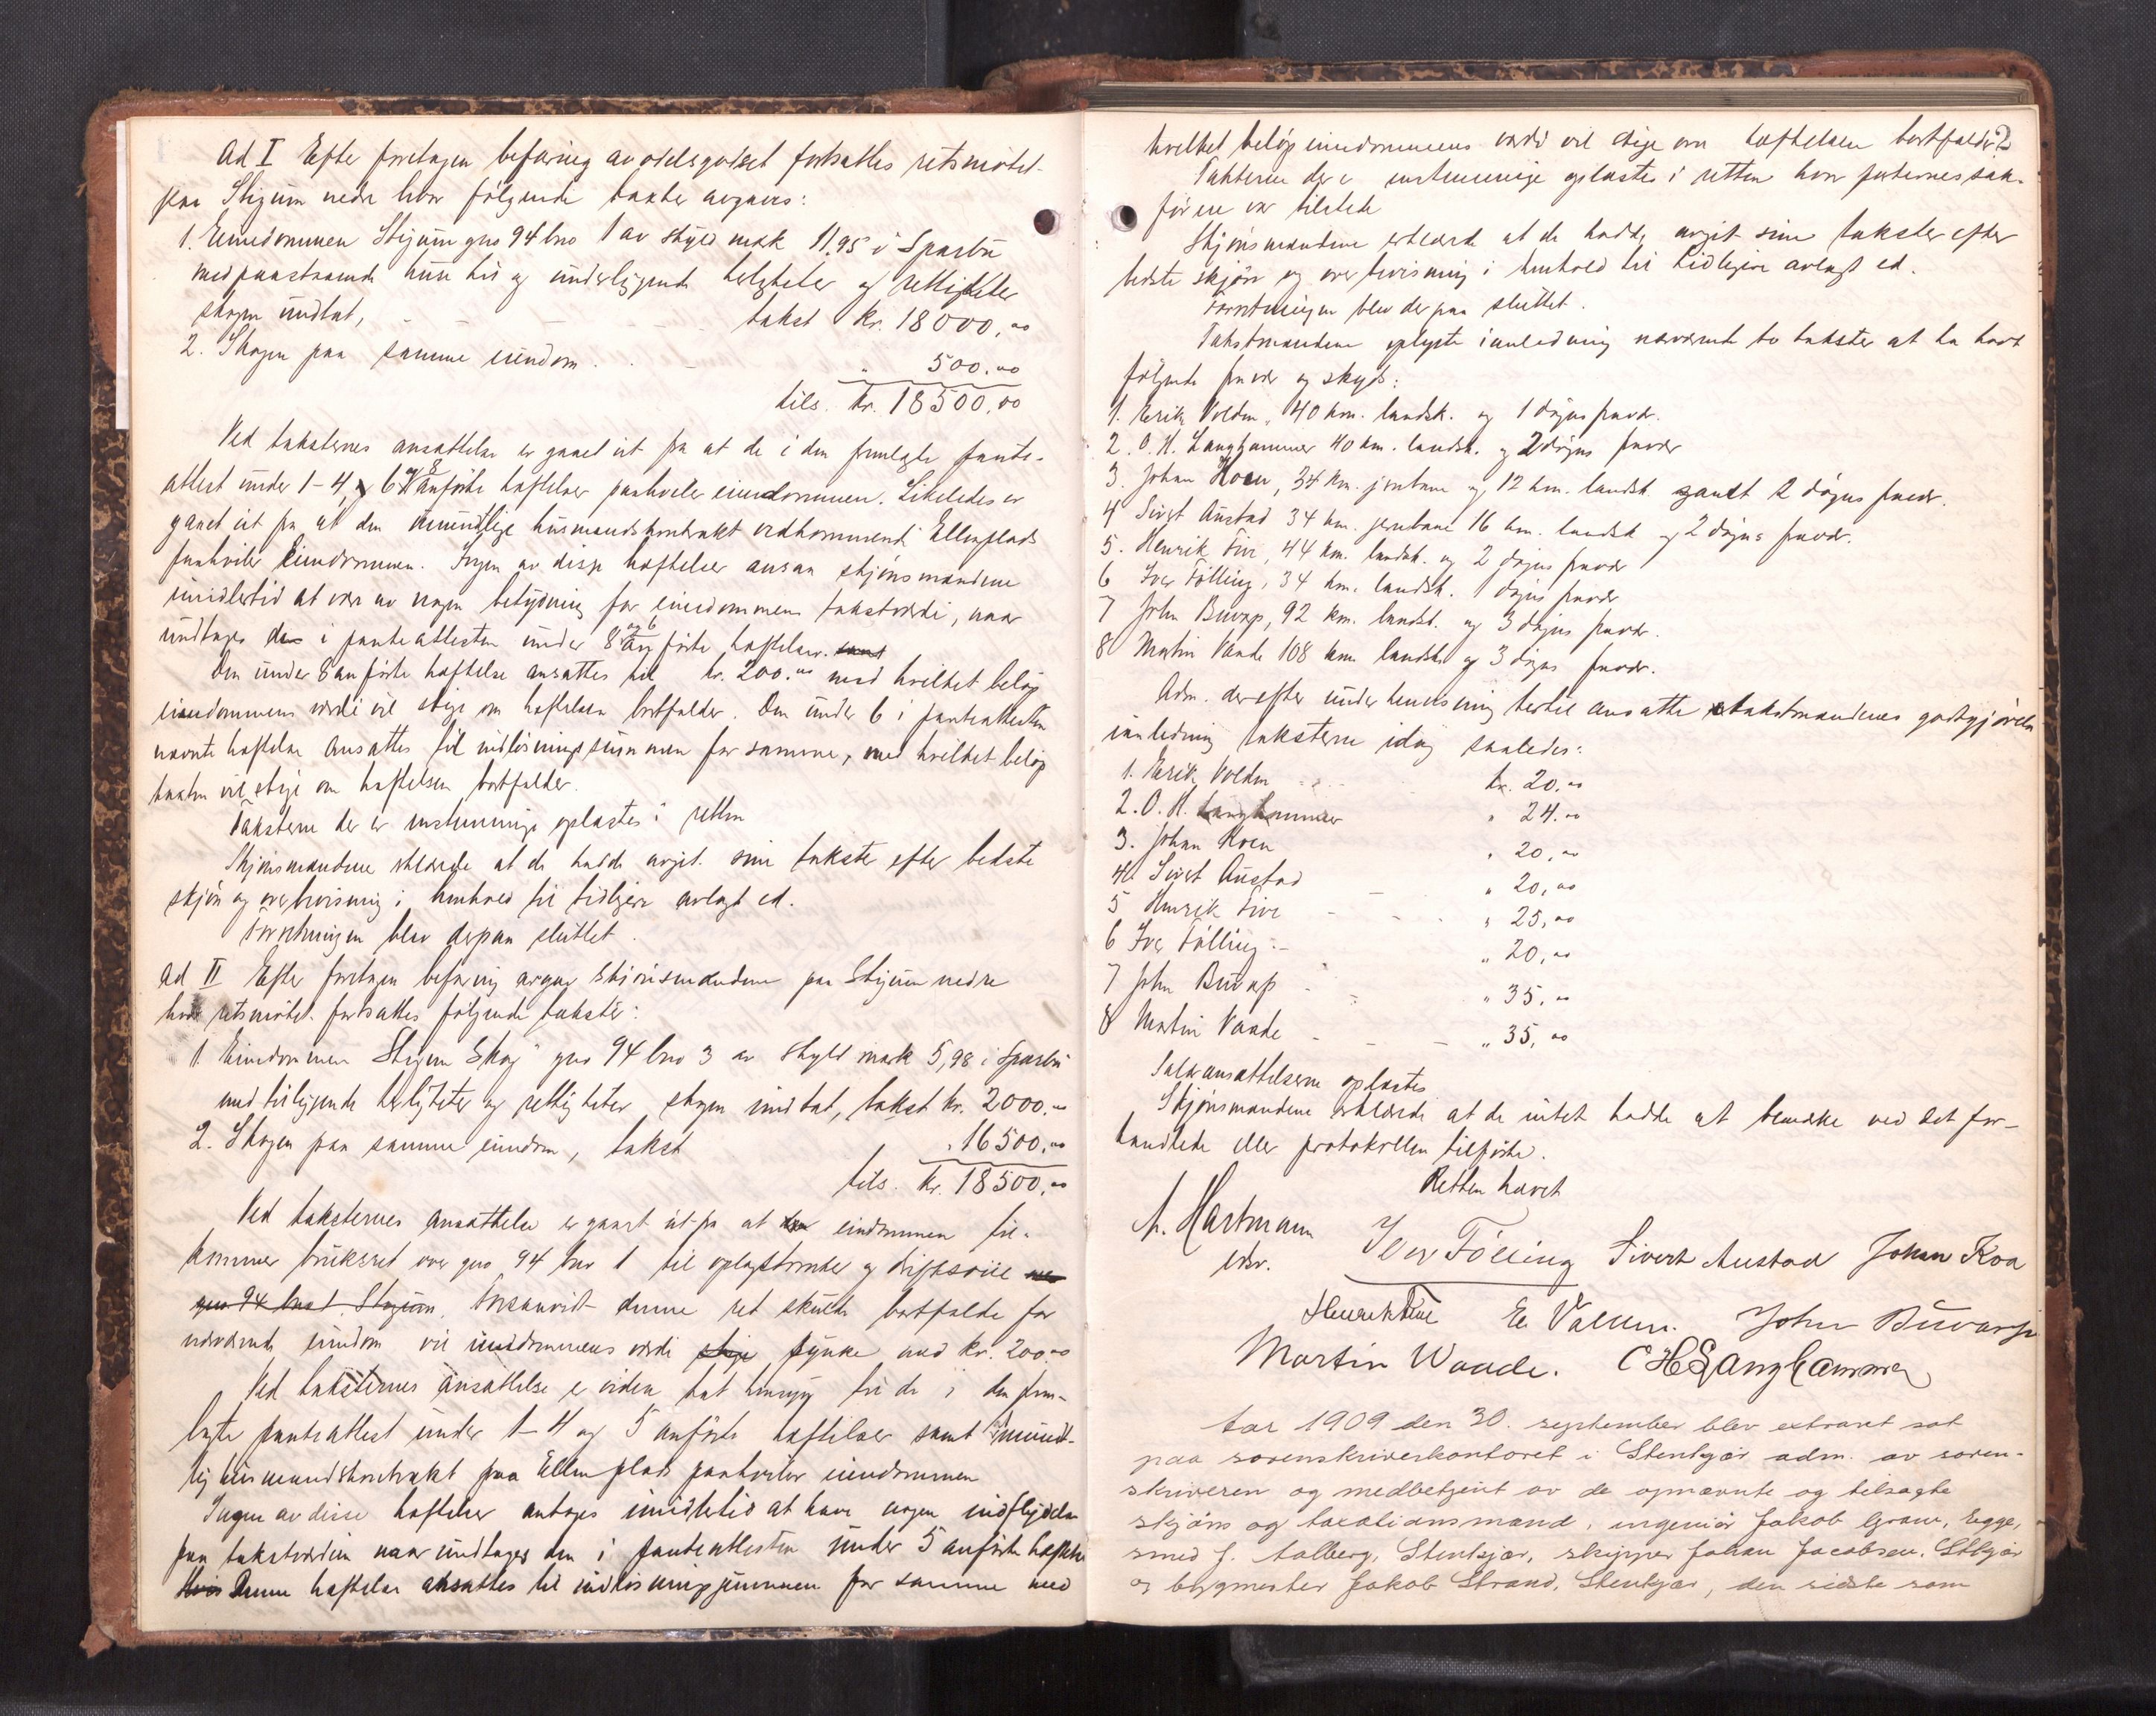 Ad I Efter foretagen befaring av odelsgodset fortsattes retsmötet
paa Stigum nedre hvor fölgende takster avgaves:
1. Eiendommen Stigum gno 94 bno 1 av skyld mark 11.95 i Sparbu
med paastaaende huse hus og underliggende herligheter og rettigheter
skogen undtat, takst kr. 18000,00
2. Skogen paa samme eiendom . . " 500.00
tils. kr. 18500,00
Ved taksternes ansættelse er gaaet ut fra at de i den fremlagte pante-
attest under 1-4 og 6 og 8 anförte heftelser paahviler eiendommen. Likeledes er
gaaet ut fra at den mundtlige husmandskontrakt vedkommende Ellenplads
paahviler eiendommen. Ingen av disse heftelser ansaa skjönsmændene
imidlertid at være av nogen betydning for eiendommens takstværdi, naar
undtages de i panteattesten under 8 og 6 anförte heftelser.
Den under 8 anförte heftelse ansættes til kr. 200.00 med hvilket belöp
eiendommens værdi vil stige om heftelsen bortfalder. Den under 6 i panteattesten
nævnte heftelse ansættes til indlösningssummen for samme, med hvilket belöp
taksten vil stige om heftelsen bortfalder.
Taksterne der er enstemmige oplæstes i retten
Skjönsmændene erklærede at de hadde avgit sine takster efter bedste
skjön og overbevisning i henhold til tidligere avlagt ed.
Forretningen blev derpaa sluttet.
Ad II Efter foretagen befaring avgav skjönsmændene paa Stigum nedre
hvor retsmötet fortsattes fölgende takster:
1. Eiendommen Stigum Skog" gno 94 bno 3 av skyld mark 5,98 i Sparbu
med tilliggende herligheter og rettigheter skogen undtat, takst kr. 2000.00
2. Skogen paa samme eiendom, takst " 16500.00
tils. kr. 18500.00
Ved taksternes ansættelse er gaaet ut fra at den eiendommen til-
kommer bruksret over gno 94 bno 1 til oplagstomter og driftsveie
gno 94 bno 1 Stigum. Forsaavidt denne ret skulde bortfalde for
nærværende eiendom vil eiendommens værdi stige synke med kr. 200.00
Ved taksternes ansættelse er videre tat hensyn til de i den frem-
lagte panteattest under 1-4 og 5 anförte heftelser samt mundt-
lig husmandskontrakt paa Ellenplads paahviler eiendommen
Ingen av disse heftelser antages imidlertid at have nogen indflydelse
paa takstværdien naar undtages den i panteattesten under 5 anförte heftelse
Hvis Denne heftelse ansættes til indlösningssummen for samme med
hvilket belöp eiendommens værdi vil stige om heftelsen bortfalder?
Taksterne der er enstemmige oplæstes i retten hvor parternes sak-
förere var tilstede
Skjönsmændene erklærede at de hadde avgit sine takster efter
bedste skjön og overbevisning i henhold til tidligere avlagt ed.
Forretningen blev derpaa sluttet.
Takstmændene oplyste i anledning nærværende to takster at ha havt
fölgende fravær og skyds:
1. Erik Volden, 40 km. landsk. og 1 dögns fravær.
2. O. H. Langhammer 40 km. landsk. og 2 dögns fravær
3. Johan Koen, 34 km. jernbane og 12 km. landsk. samt 2 dögns fravær.
4 Sivert Austad 34 km. jernbane 16 km. landsk og 2 dögns fravær.
5. Henrik Five, 44 km. landsk. og 2 dögns fravær
6 Iver Fölling, 34 km. landsk. 1 dögns fravær
7 John Buvarp, 92 km. landsk. og 3 dögns fravær.
8 Martin Vaade 108 km landsk og 3 dögns fravær.
Adm. derefter under henvisning hertil ansatte takstmændenes godtgjörelse
i anledning taksterne idag saaledes:
1. Erik Volden kr. 20,00
2. O. H. Langhammer " 24.00
3. Johan Koen " 20,00
4 Sivert Austad " 20,00
5 Henrik Five " 25,00
6 Iver Fölling " 20,00
7 John Buvarp " 35.00
8 Martin Vaade " 35,00
Salæransættelserne oplæstes
Skjönsmændene erklærede at de intet hadde at bemerke ved det for-
handlede eller protokollen tilförte.
Retten hævet
A. Hartmann Iver Fölling Sivert Austad Johan Koa
edsv.
Henrik Five E. Volden. John Buvarp
Martin Waade. O H Langhammer
Aar 1909 den 30. september blev extraret sat
paa sorenskriverkontoret i Stenkjær adm. av soren-
skriveren og medbetjent av de opnævnte og tilsagte
skjöns og taxationsmænd, ingeniör Jakob Gram, Egge,
smed J. Aalberg, Stenkjær, skipper Johan Jacobsen, Stkjær
og bygmester Jakob Strand, Stenkjær, den sidste som